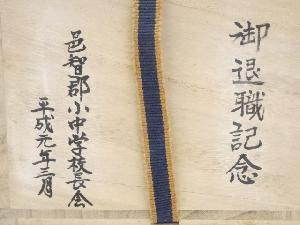 御退職記念
邑智郡小中学校長会
平成元年三月